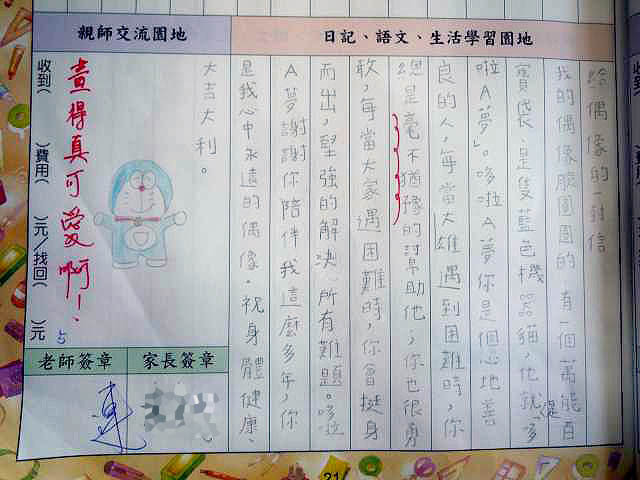 親師交流園地
日記、語文、生活學習園地
給偶像的一封信
我的偶像臉圓圓的 有一個萬能百
寶袋,是隻藍色機器貓,他就是哆
啦A夢」。哆啦A夢你是個心地善
良的人,每當大雄遇到困難時,你
總是毫不猶豫的幫助他;你也很勇
敢,每當大家遇困難時,你會挺身
而出,堅強的解決所有難題。哆啦
A夢謝謝你陪伴我這麼多年,你
是我心中永遠的偶像。祝身體健康、
大吉大利。
畫得真可愛啊!
收到( )費用( )元/找回( )元
5
老師簽章
家長簽章
21